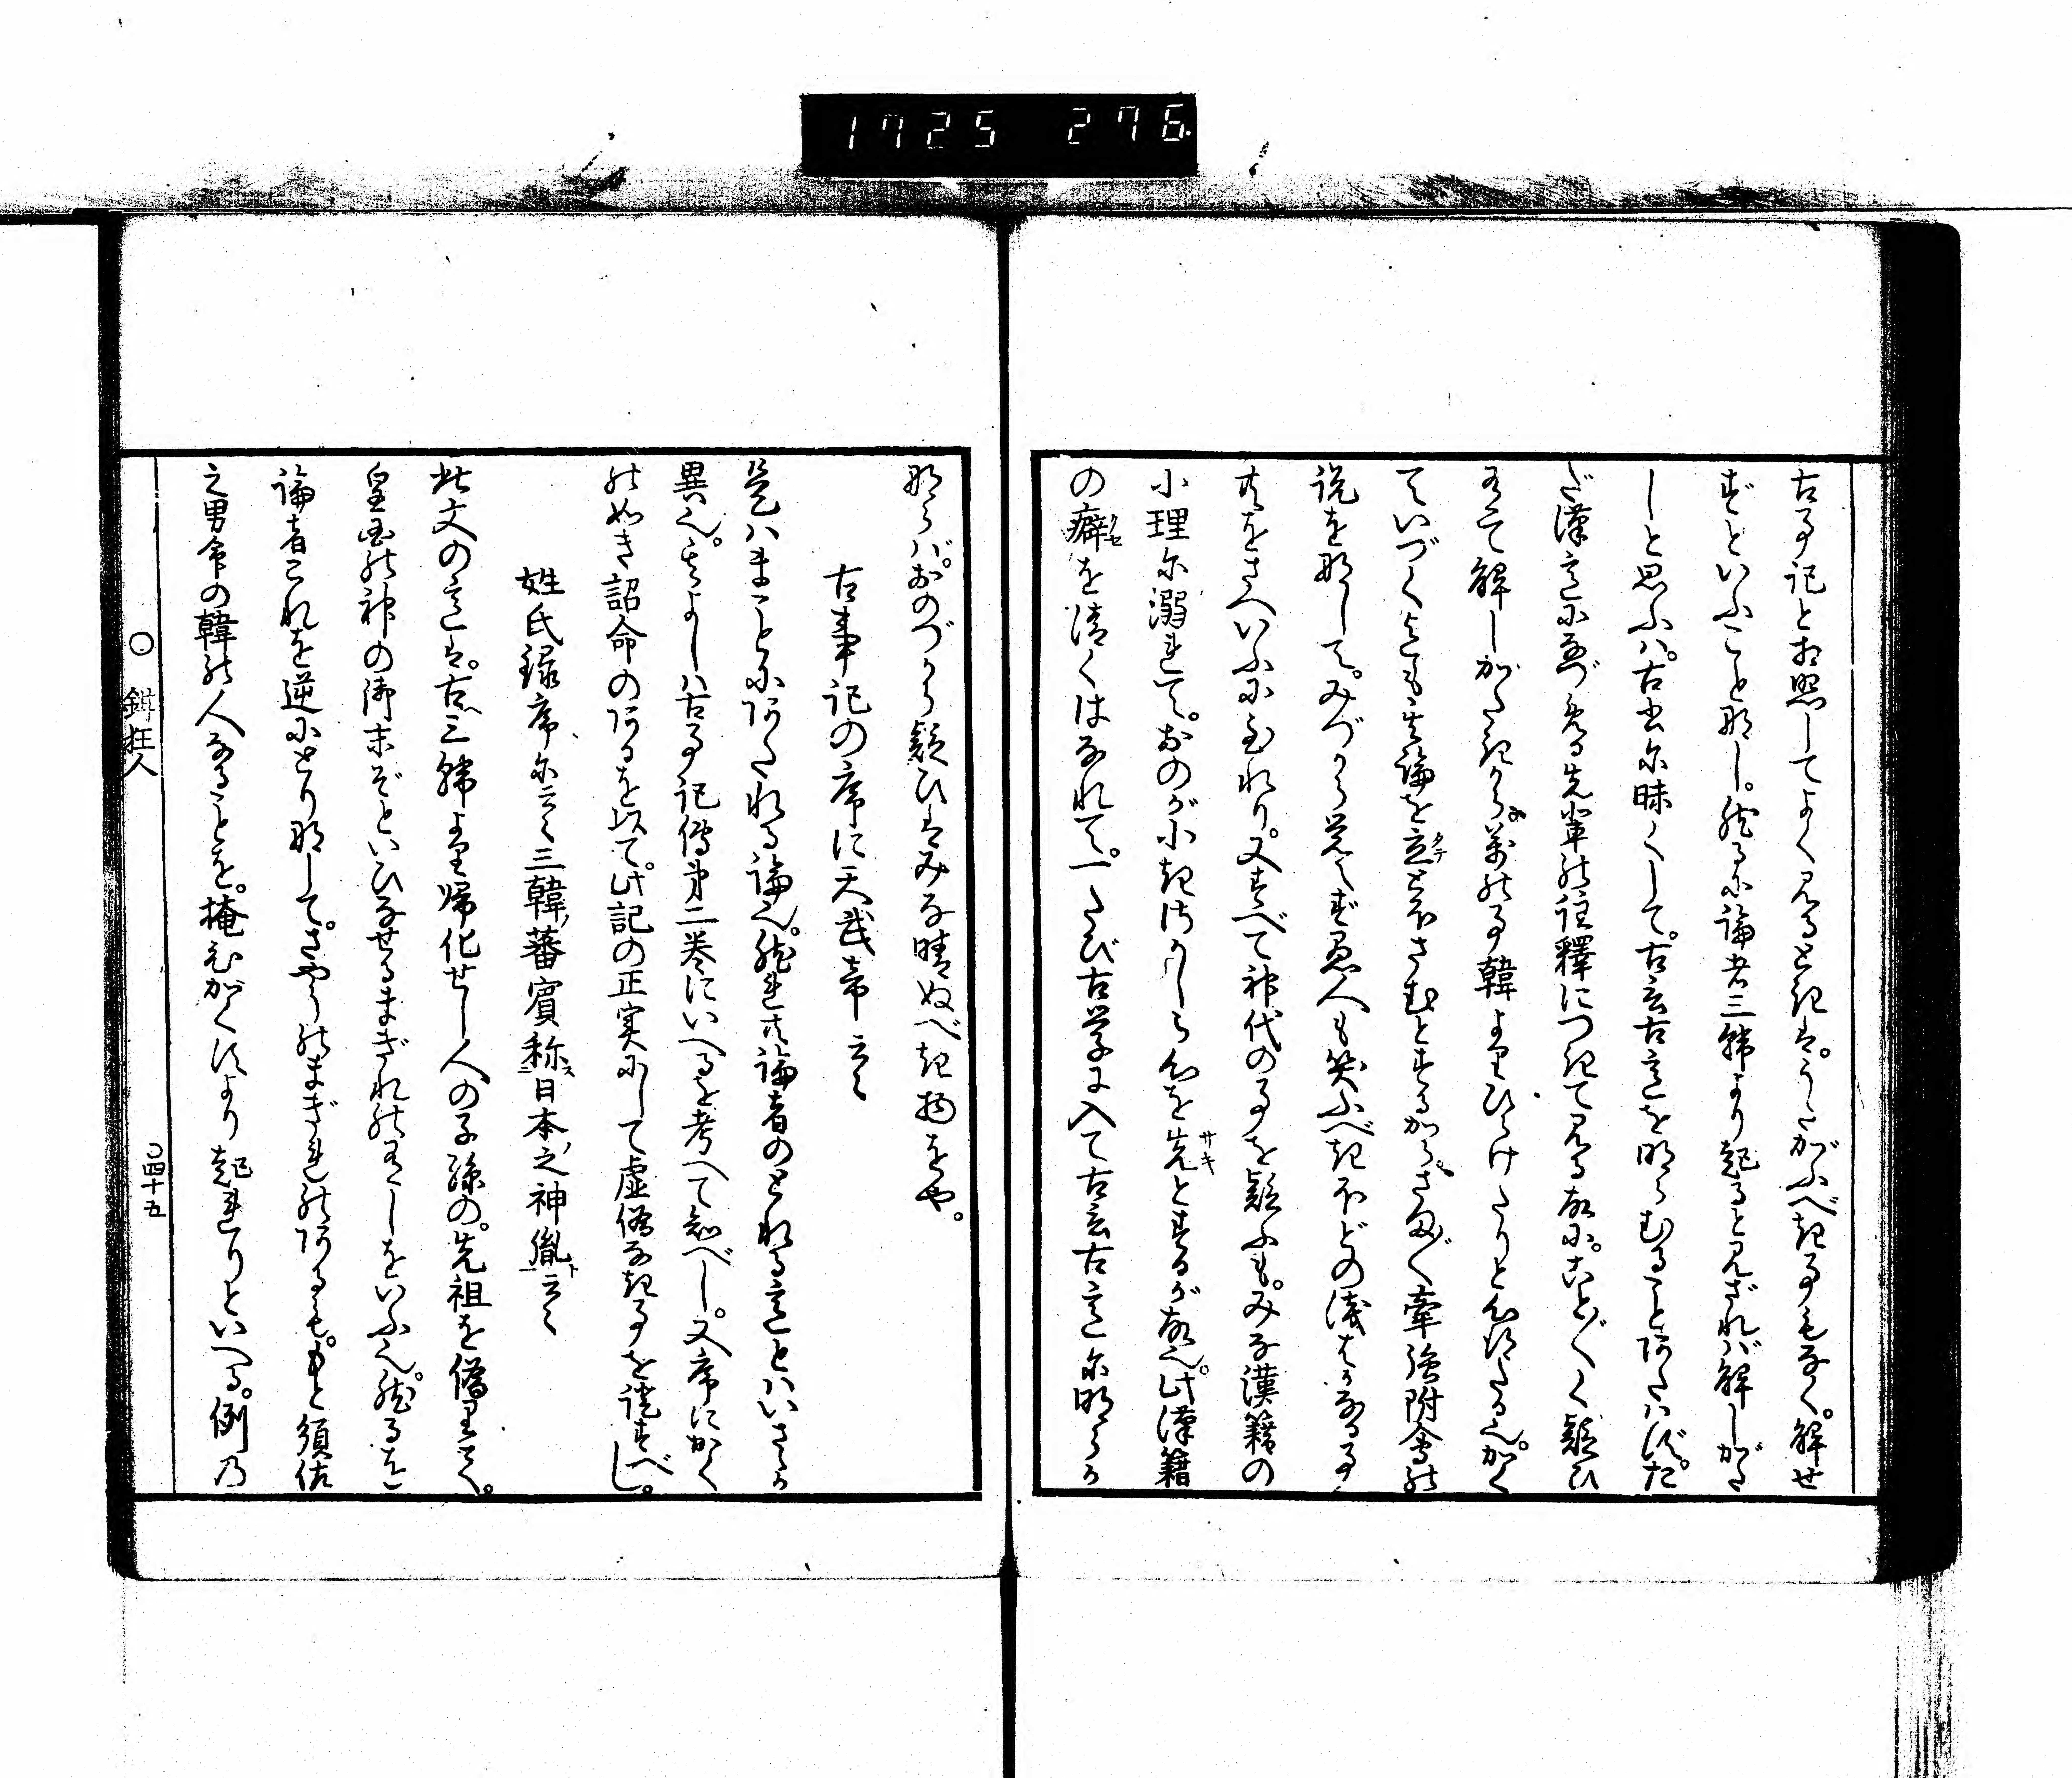 1725 276
古事記と相照してよく見るときは。うたがふべき事もなく。解せ
ずといふこと那し。然るに論者三韓より起ると見ざれバ解しがた
しと思ふハ。古書尓昧くして。古言古意を明らむることあたハず。た
だ漢意になづめる先輩の註釋につきて見る故に。ことごとく疑ひ
有て解しがたきから。萬の事韓よりひらけたりと心得たる也。かく
ていづくまでも其論を立とほさむとするから。さまざま牽強附會の
説を那して。みづから覚えず愚人も笑ふべきほどの浅はかなる事
共をさへいふに至れり。又すべて神代の事を疑ふも。みな漢籍の
小理尓溺れて。おのが小きさかしら心を先とするが故也。此漢籍
の癖を清くはなれて。一たび古学に入て古言古意尓明らか
那らバ。おのづから疑ひはみな晴ぬべき物をや。
古事記の序に天武帝云々
是ハまことにあたれる論也。然れ共論者のとれる意とハいさゝか
異也。其よしハ古事記傳第二巻にいへるを考へて知べし。又序にかく
の如き詔命のあるを以て。此記の正実にして虚偽なき事を信ずべし。
姓氏録序尓云く三韓ノ蕃賓称ス日本ノ之神胤ト云々
此文の意は。古へ三韓より帰化せし人の子孫の。先祖を偽りて。
皇国の神の御末ぞといひなせるまぎれの有しをいふ也。然るを
論者これを逆にとり那して。さやうのまぎれのあるも。もと須佐
之男命の韓の人なることを。掩むがくによ り起れりといへる。例乃
〇 鉗狂人
〇四十五